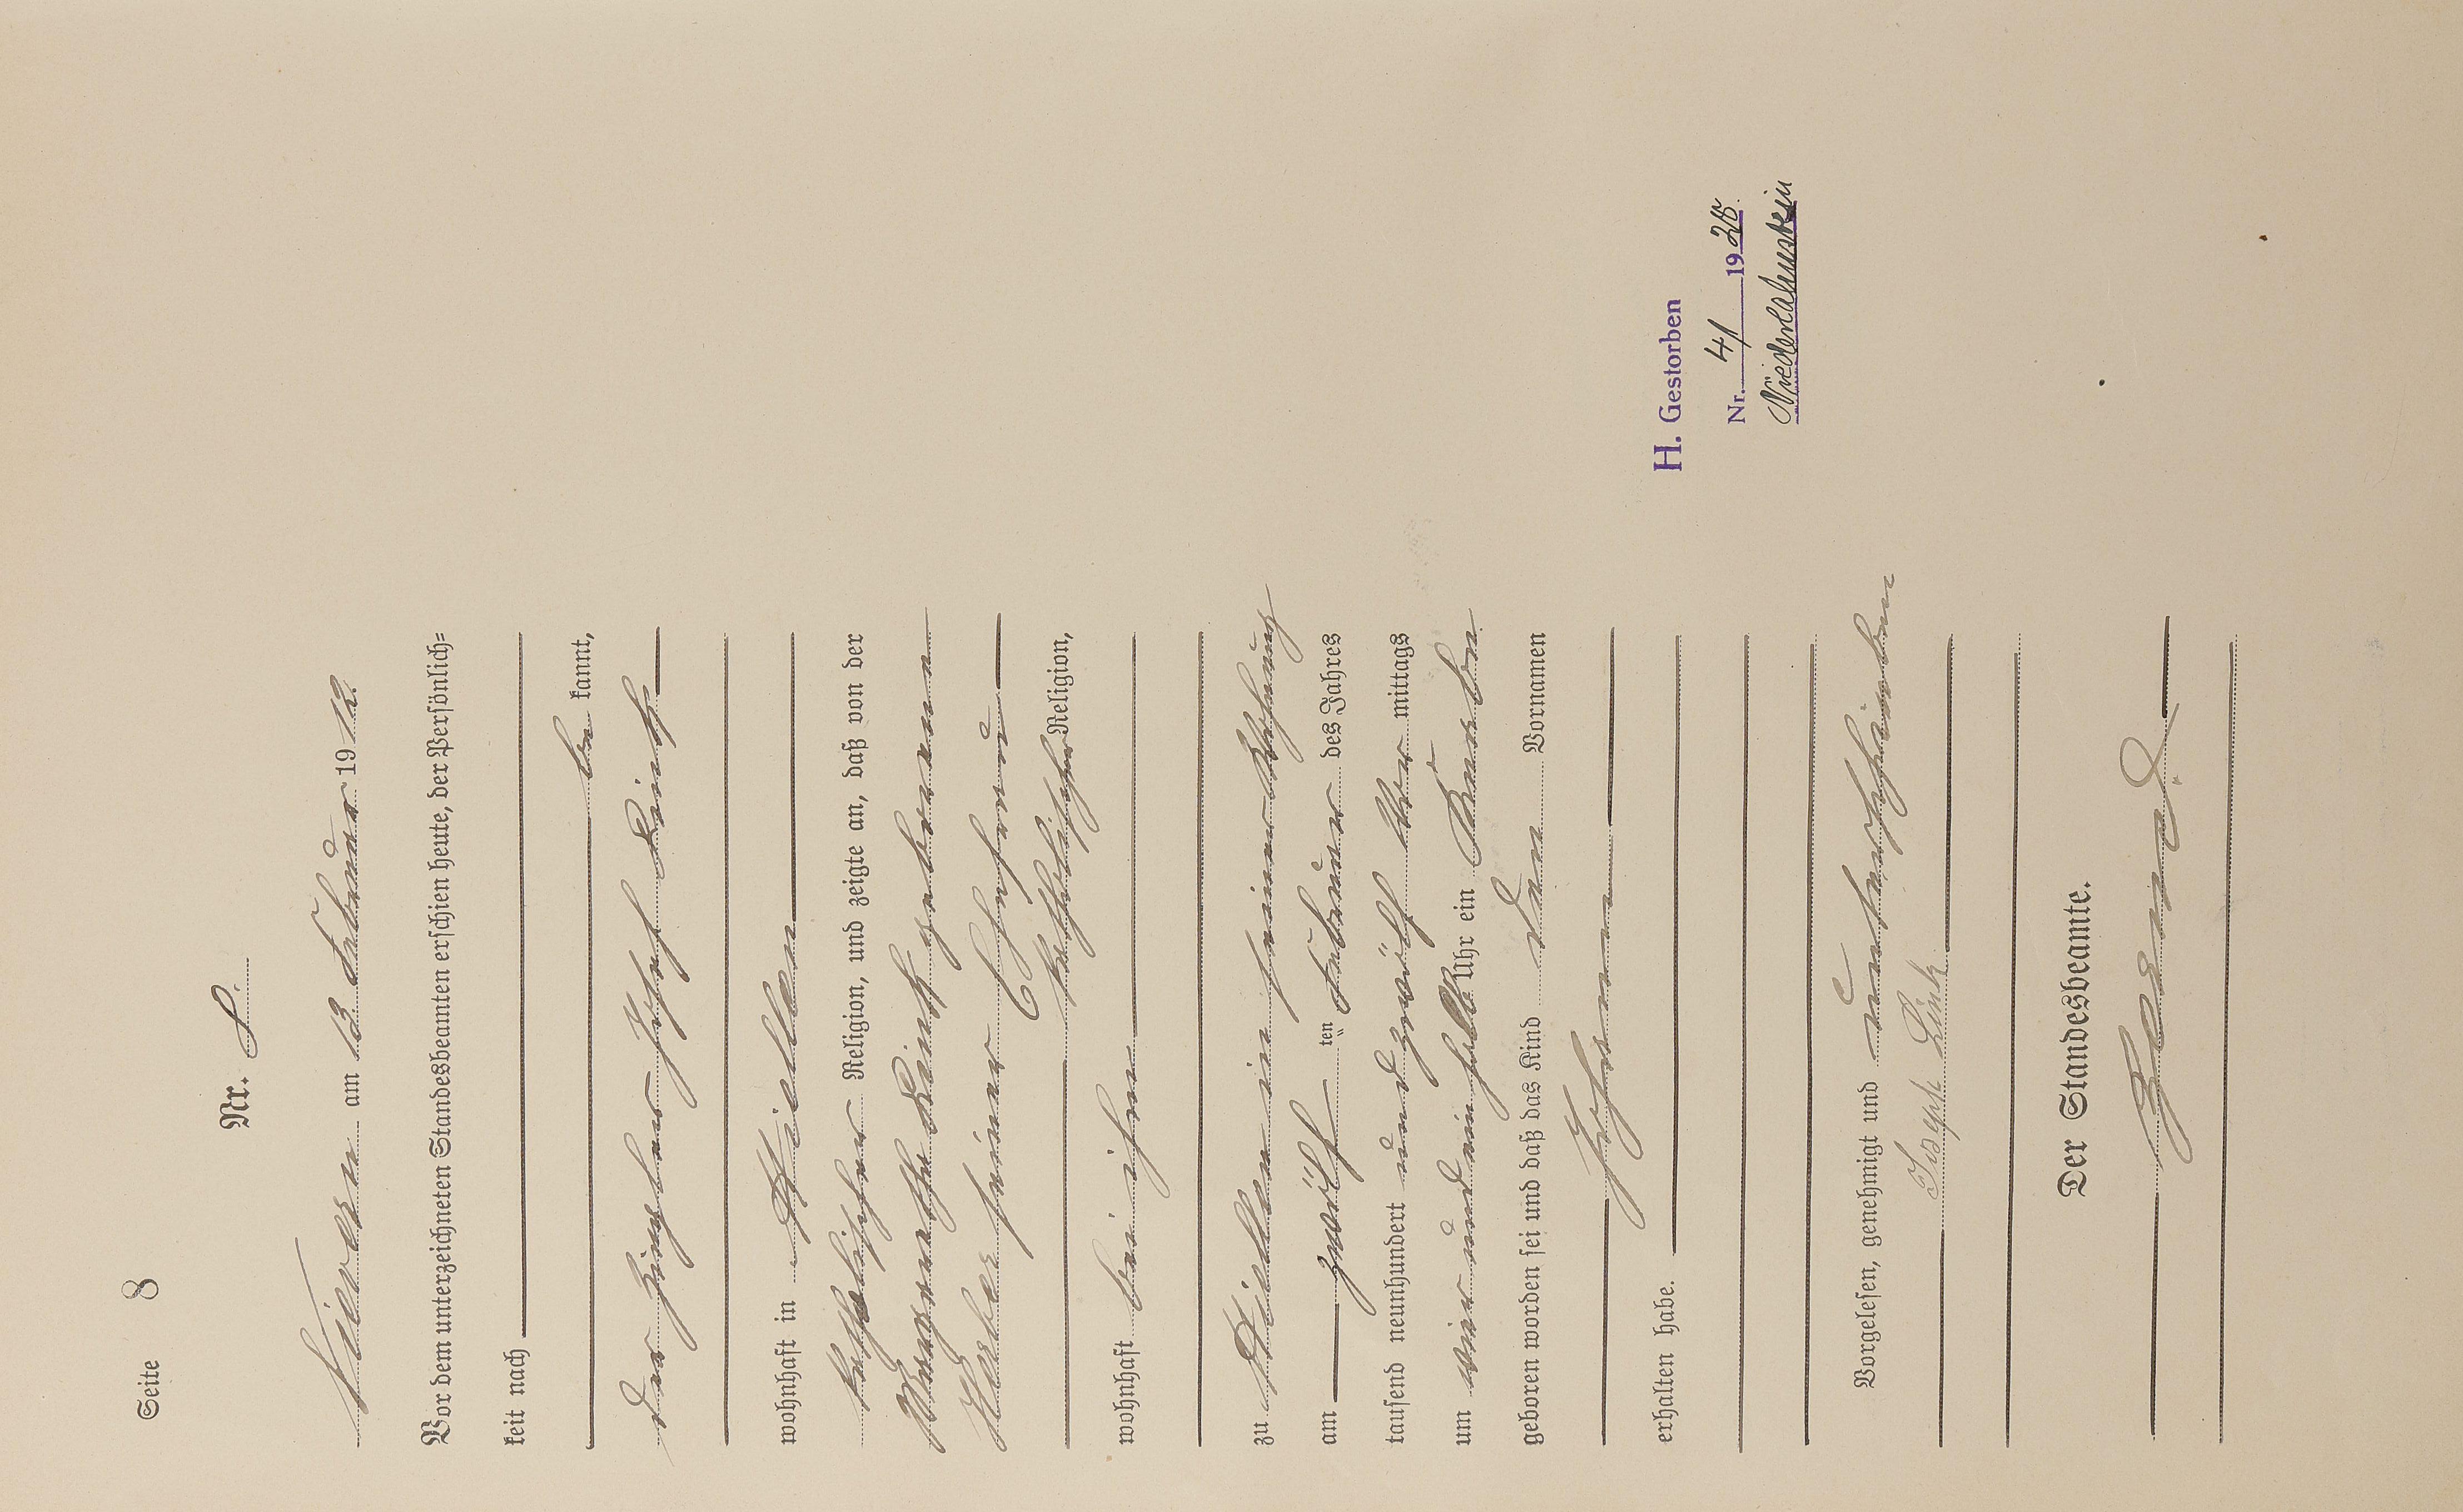 Seite 8
Nr. 8.
Fievern am 13. Februar 1912.
Vor dem unterzeichneten Standesbeamten erschien heute, der Persönlich=
keit nach
be kannt,
der Joseph Link
wohnhaft in Miellen
katholischer Religion, und zeigte an, daß von der
Margaretha Link geborenen
seiner Ehefrau
katholischer Religion,
wohnhaft bei ihm
zu Miellen in seiner Wohnung
am zwölf ten Februar des Jahres
tausend neunhundert und zwölf Vor mittags
um vier und ein halb Uhr ein Knabe
geboren worden sei und daß das Kind den Vornamen
Johann
erhalten habe.
Vorgelesen, genehmigt und unterschrieben
Joseph Link
Der Standesbeamte.
H. Gestorben
Nr. 41 1928.
Niederlahnstein